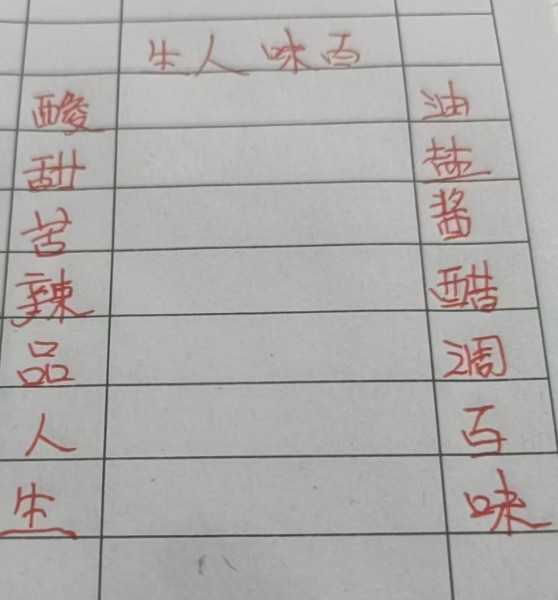 百味人生
油盐酱醋调百味
酸甜苦辣品人生